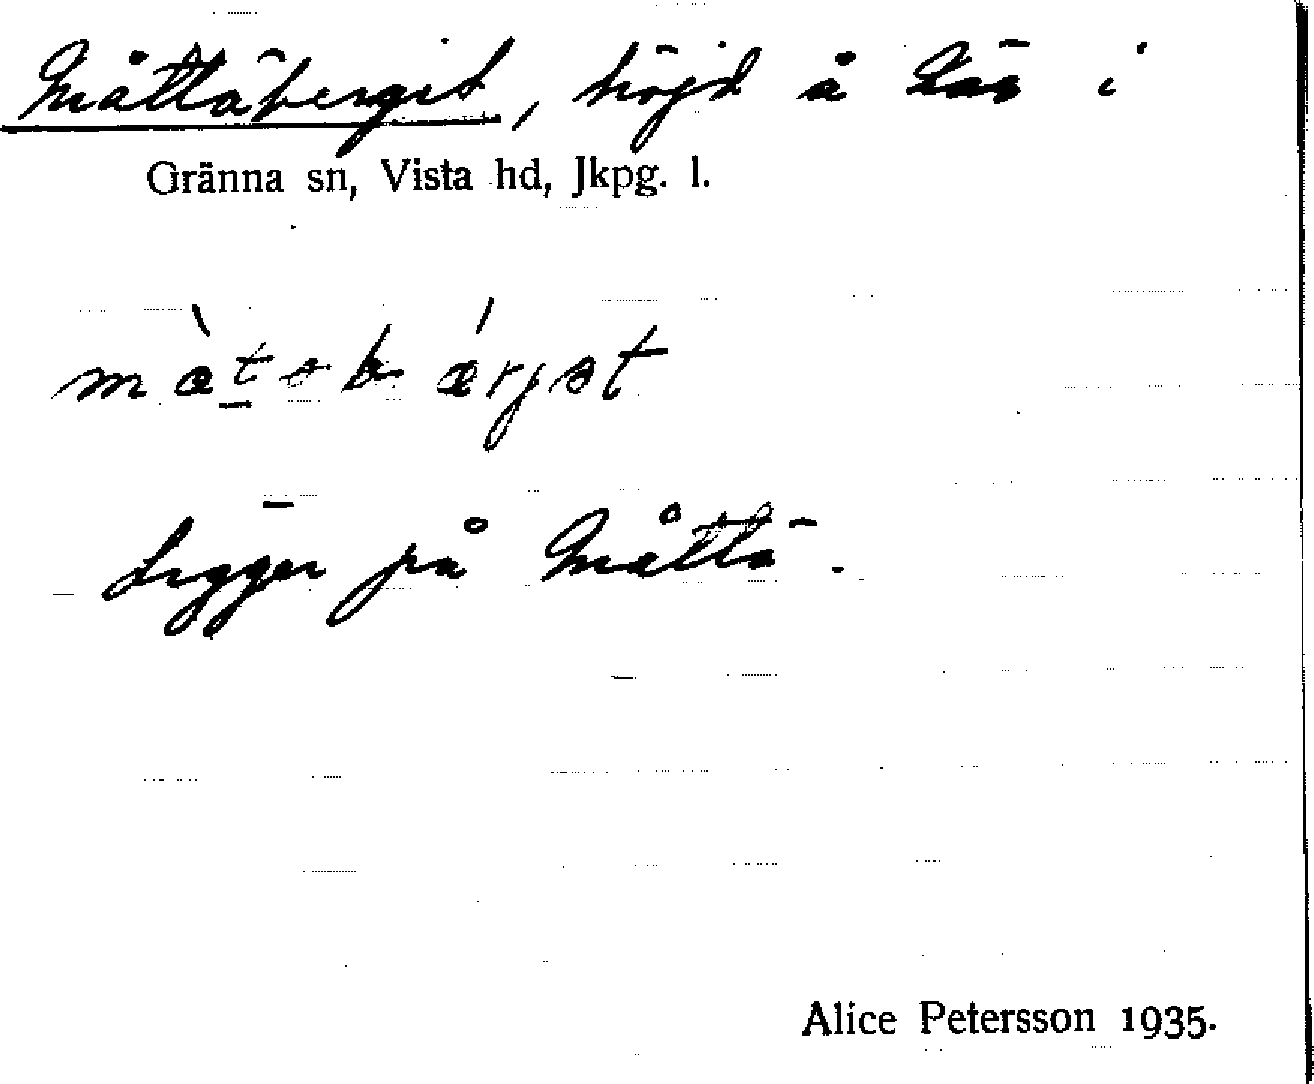 Måttäberget, höjd å Län i
Gränna sn, Vista hd, Jkpg. l.
Ligger på Måttä.
Alice Petersson 1935.